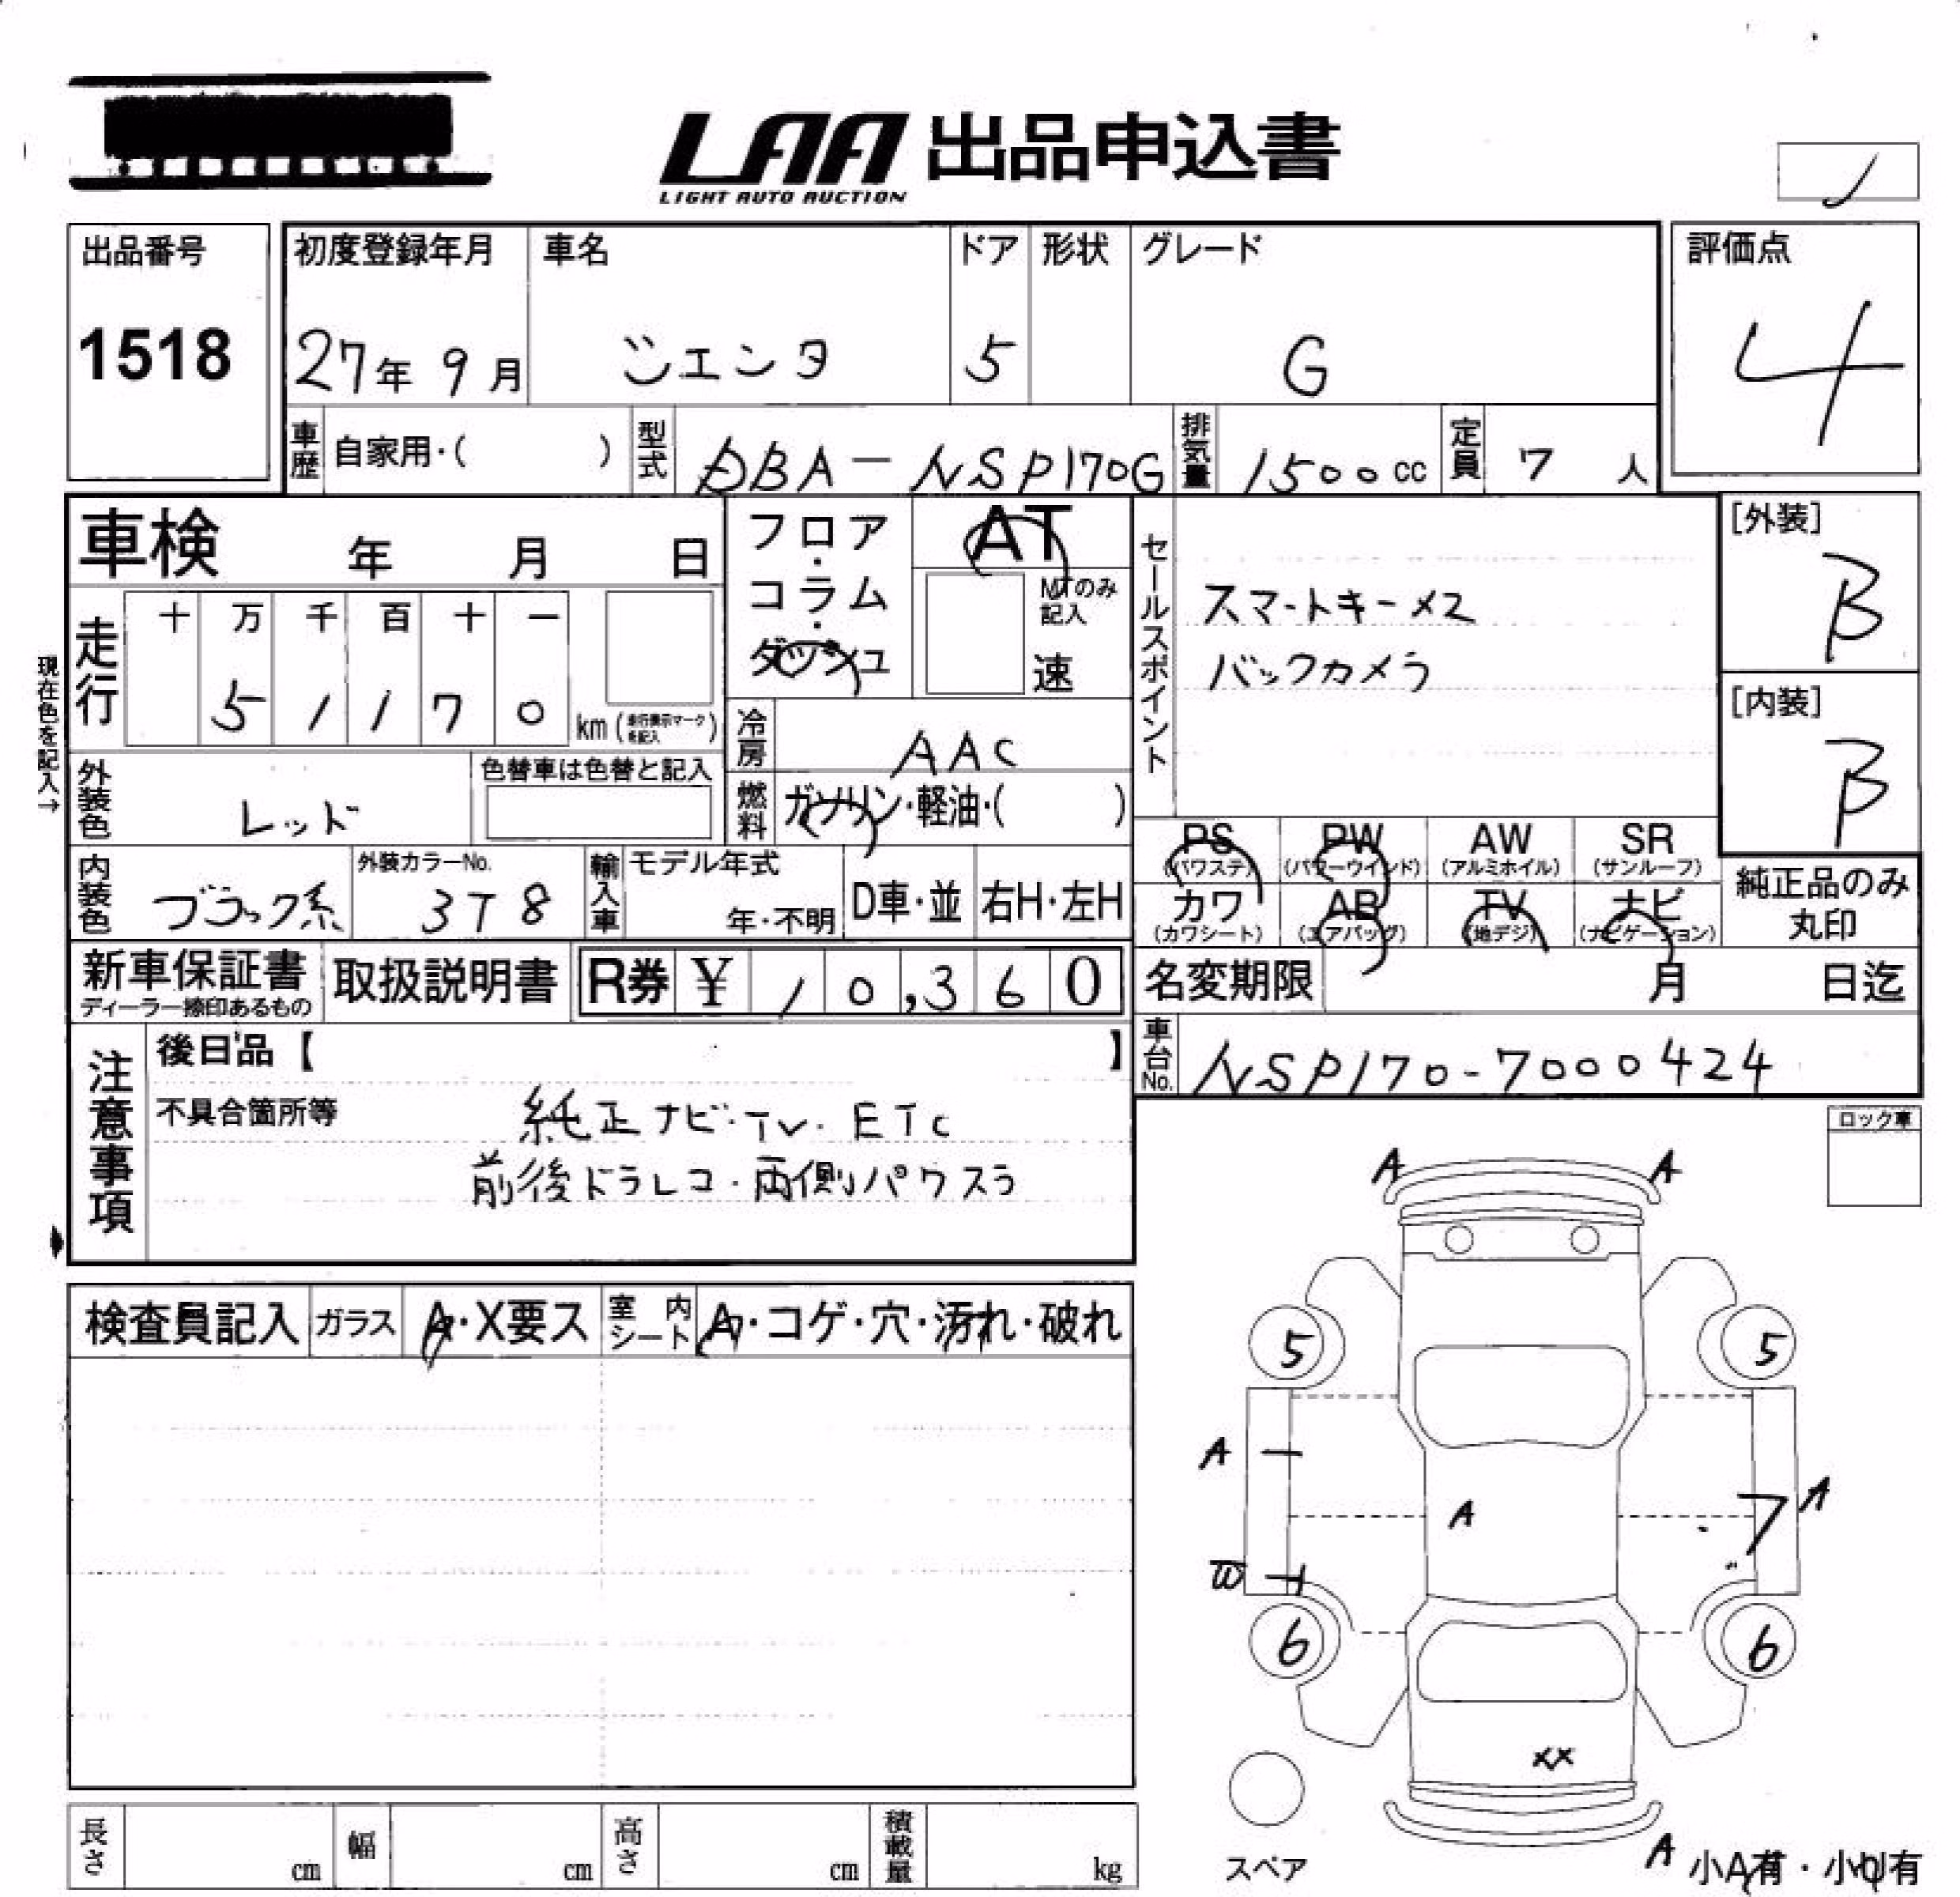 LAA 出品申込書
LIGHT AUTO AUCTION
出品番号
1518
初度登録年月
27年 9月
車名
シエンタ
ドア
5
形状
グレード
G
評価点
4
車歴 自家用・( )
型式 DBA-NSP170G
排気量 1500cc
定員 7 人
車検 年 月 日
フロア・コラム・ダッシュ
AT
MTのみ記入
速
セールスポイント
スマートキーメ2
バックカメラ
[外装]
B
[内装]
B
現在色を記入→
走行
十 万 千 百 十 一
5 1 1 7 0 km (走行表示マークを記入)
冷房 AAC
燃料 ガソリン・軽油・( )
外装色 レッド
色替車は色替と記入
内装色 ブラック系
外装カラーNo.
3T8
輸入車 モデル年式
年・不明
D車・並 右H・左H
PS (パワステ) PW (パワーウインド) AW (アルミホイル) SR (サンルーフ)
カワ (カワシート) AB (エアバッグ) TV (地デジ) ナビ (ナビゲーション)
純正品のみ丸印
新車保証書
ディーラー捺印あるもの
取扱説明書
R券 ¥ 10,360
名変期限 月 日迄
車台No. NSP170-7000424
注意事項
後日品【 】
不具合箇所等
純正ナビ・TV・ETC
前後ドラレコ・両側パワスラ
ロック車
検査員記入 ガラス A・X要ス 室内シート A・コゲ・穴・汚れ・破れ
A A
5 5
A
A A
W
6 6
XX
スペア
A 小A有・小U有
長さ cm 幅 cm 高さ cm 積載量 kg